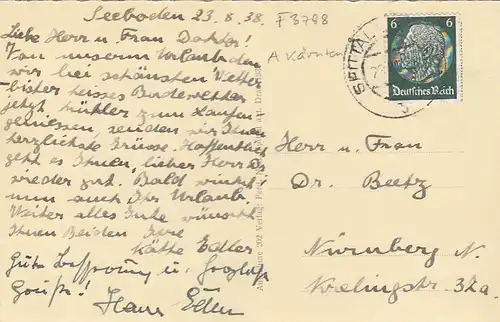 Seeboden 23.8.38. F3798
Liebe Herr u. Frau Doktor!
Von unserem Urlaub den
wir bei schönsten Wetter
bisher heisses Badewetter
jetzt kühler zum Laufen
geniessen, senden wir Ihnen
herzlichste Grüsse. Hoffentlich
geht es Ihnen, lieber Herr Dr.
wieder gut. Bald winkt
nun auch Ihr Urlaub.
Weiter alles Gute wünscht
Ihnen Beiden Ihre
Käthe Edler
Gute u.
Hans Edler
A Kärnten
SPITTAL
6
Deutsches Reich
Herr u. Frau
Dr. Beetz
Nürnberg N.
32a.
202 Verlag